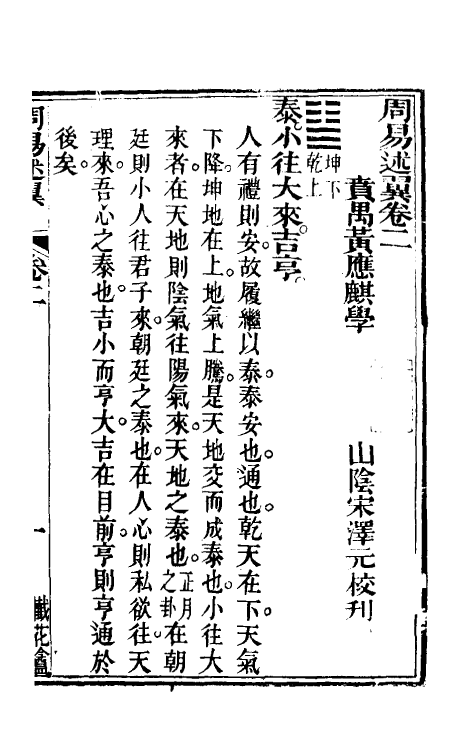 周易述翼卷二
賁禺黃應麒學　山陰宋澤元校刊
坤下
乾上
泰小往大來吉亨
人有禮則安。故履繼以泰。泰安也。通也。乾天在下。天氣
下降。坤地在上。地氣上騰。是天地交而成泰也。小往大
來者。在天地則陰氣往陽氣來。天地之泰也。正月之卦在朝
廷則小人往君子來。朝廷之泰也。在人心則私欲往。天
理來。吾心之泰也。吉小而亨大。吉在目前。亨則亨通於
後矣。
周易述翼
卷二
一
懺花盦